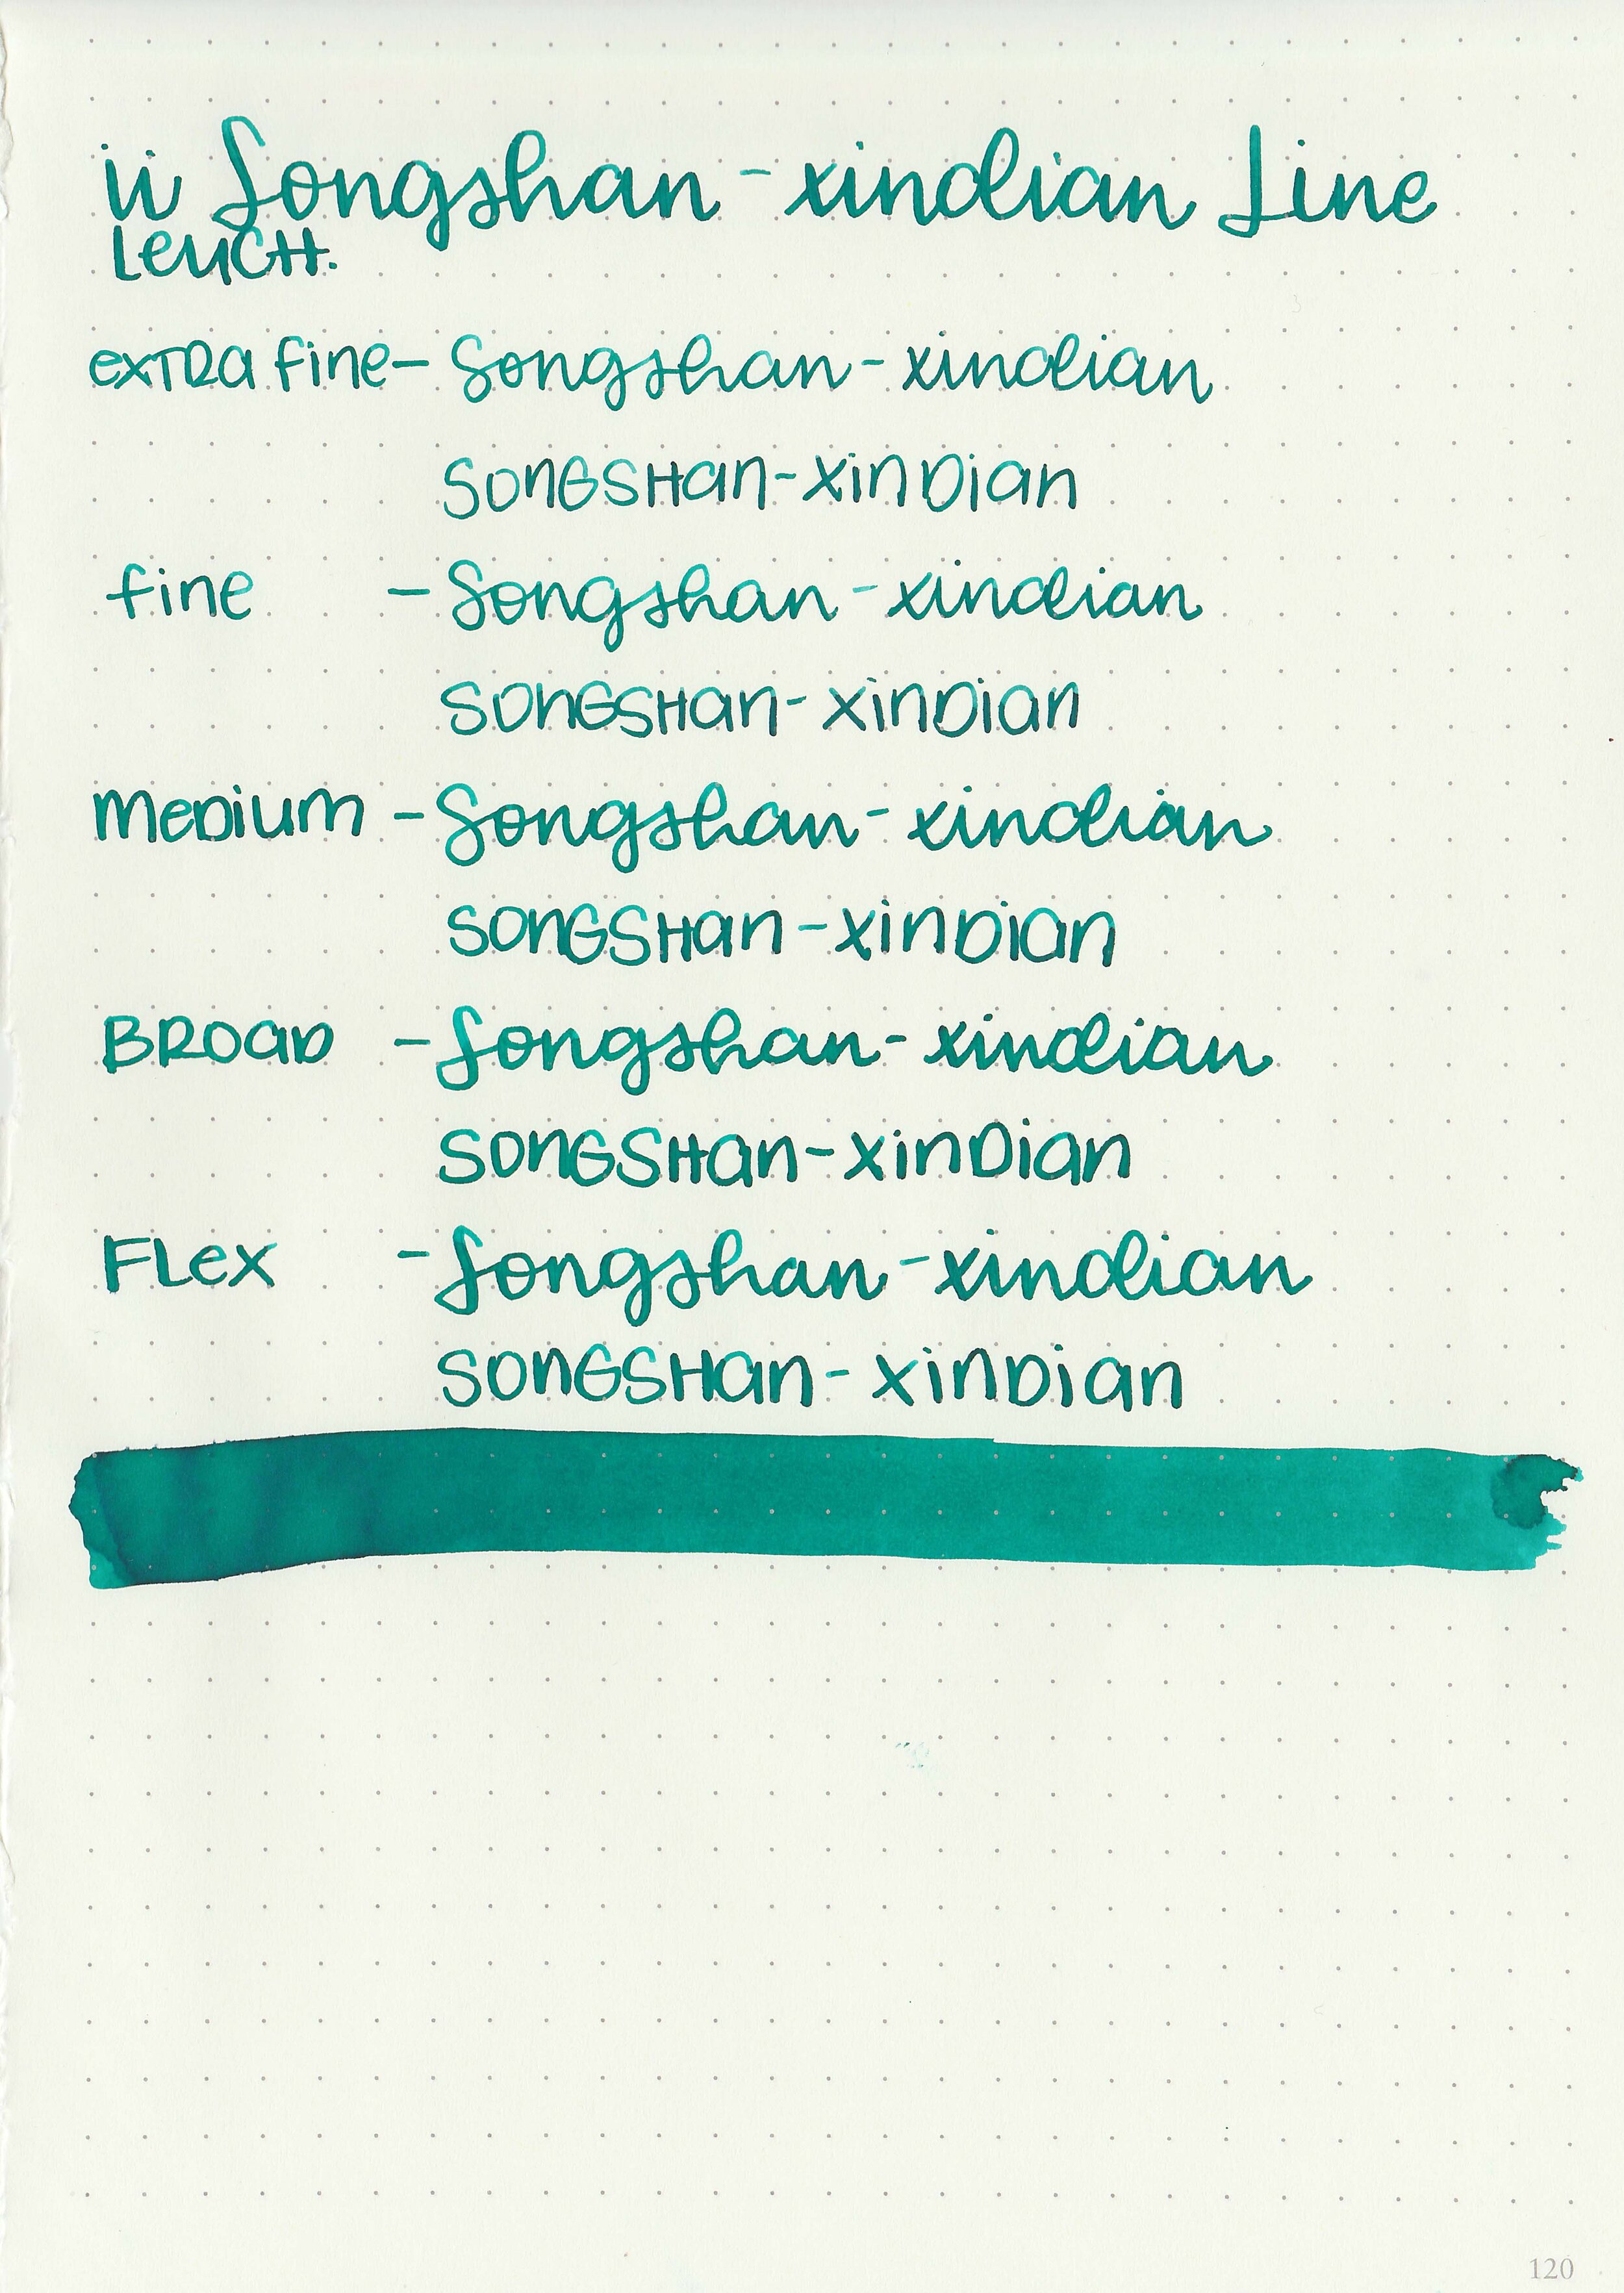 ii Songshan-xindian Line
Leucht.
extra fine - Songshan-xindian
SONGSHan-XinDian
fine - Songshan-xindian
SONGSHan-XinDian
MeDium - Songshan-xindian
SONGSHan-XinDian
BROaD - Songshan-xindian
SONGSHan-XinDian
FLex - Songshan-xindian
SONGSHan-XinDian
120